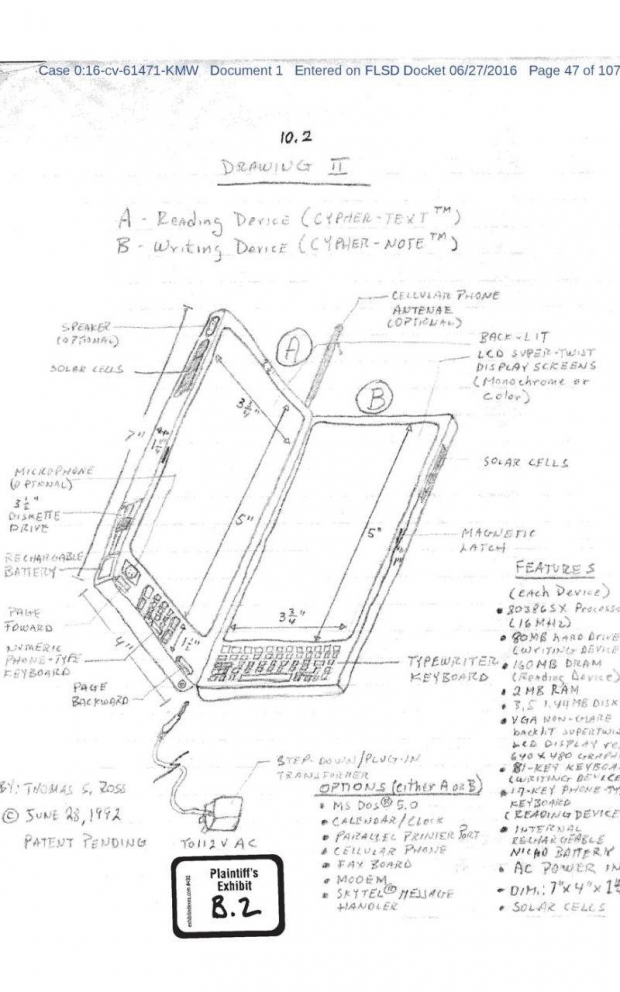 Case 0:16-cv-61471-KMW Document 1 Entered on FLSD Docket 06/27/2016 Page 47 of 107
10.2
DRAWING II
A - Reading Device (CYPHER-TEXT™)
B - Writing Device (CYPHER-NOTE™)
CELLULAR PHONE
ANTENAE
(OPTIONAL)
SPEAKER
(OPTIONAL)
SOLAR CELLS
A
BACK-LIT
LCD SUPER-TWIST
DISPLAY SCREENS
(Monochrome or
Color)
B
3 3/4"
7"
SOLAR CELLS
MICROPHONE
(OPTIONAL)
3 1/2"
DISKETTE
DRIVE
5"
5"
MAGNETIC
LATCH
RECHARGABLE
BATTERY
PAGE
FOWARD
NUMERIC
PHONE-TYPE
KEYBOARD
4"
1 1/2"
3 3/4"
TYPEWRITER
KEYBOARD
PAGE
BACKWARD
FEATURES
(each Device)
• 80386SX Processo
(16 MHz)
• 80MB HARD DRIVE
(WRITING DEVICE
• 160MB DRAM
(Reading Device)
• 2 MB RAM
• 3.5 1.44MB DISK
• VGA NON-GLARE
backlit SUPERTWIS
LCD DISPLAY
640 X 480 GRAPHI
• 81-KEY KEYBOA
(WRITING DEVICE
• 17-KEY PHONE-TY
KEYBOARD
(READING DEVICE
• INTERNAL
RECHARGEABLE
NICAD BATTERY
• AC POWER IN
• DIM.: 7"x 4"x
• SOLAR CELLS
STEP-DOWN/PLUG-IN
TRANSFORMER
TO 112 V AC
OPTIONS (either A or B)
• MS DOS® 5.0
• CALENDAR/CLOCK
• PARALLEL PRINTER PORT
• CELLULAR PHONE
• FAX BOARD
• MODEM
• SKYTEL® MESSAGE
HANDLER
BY: THOMAS S. ROSS
© JUNE 28, 1992
PATENT PENDING
Plaintiff's
Exhibit
B.2